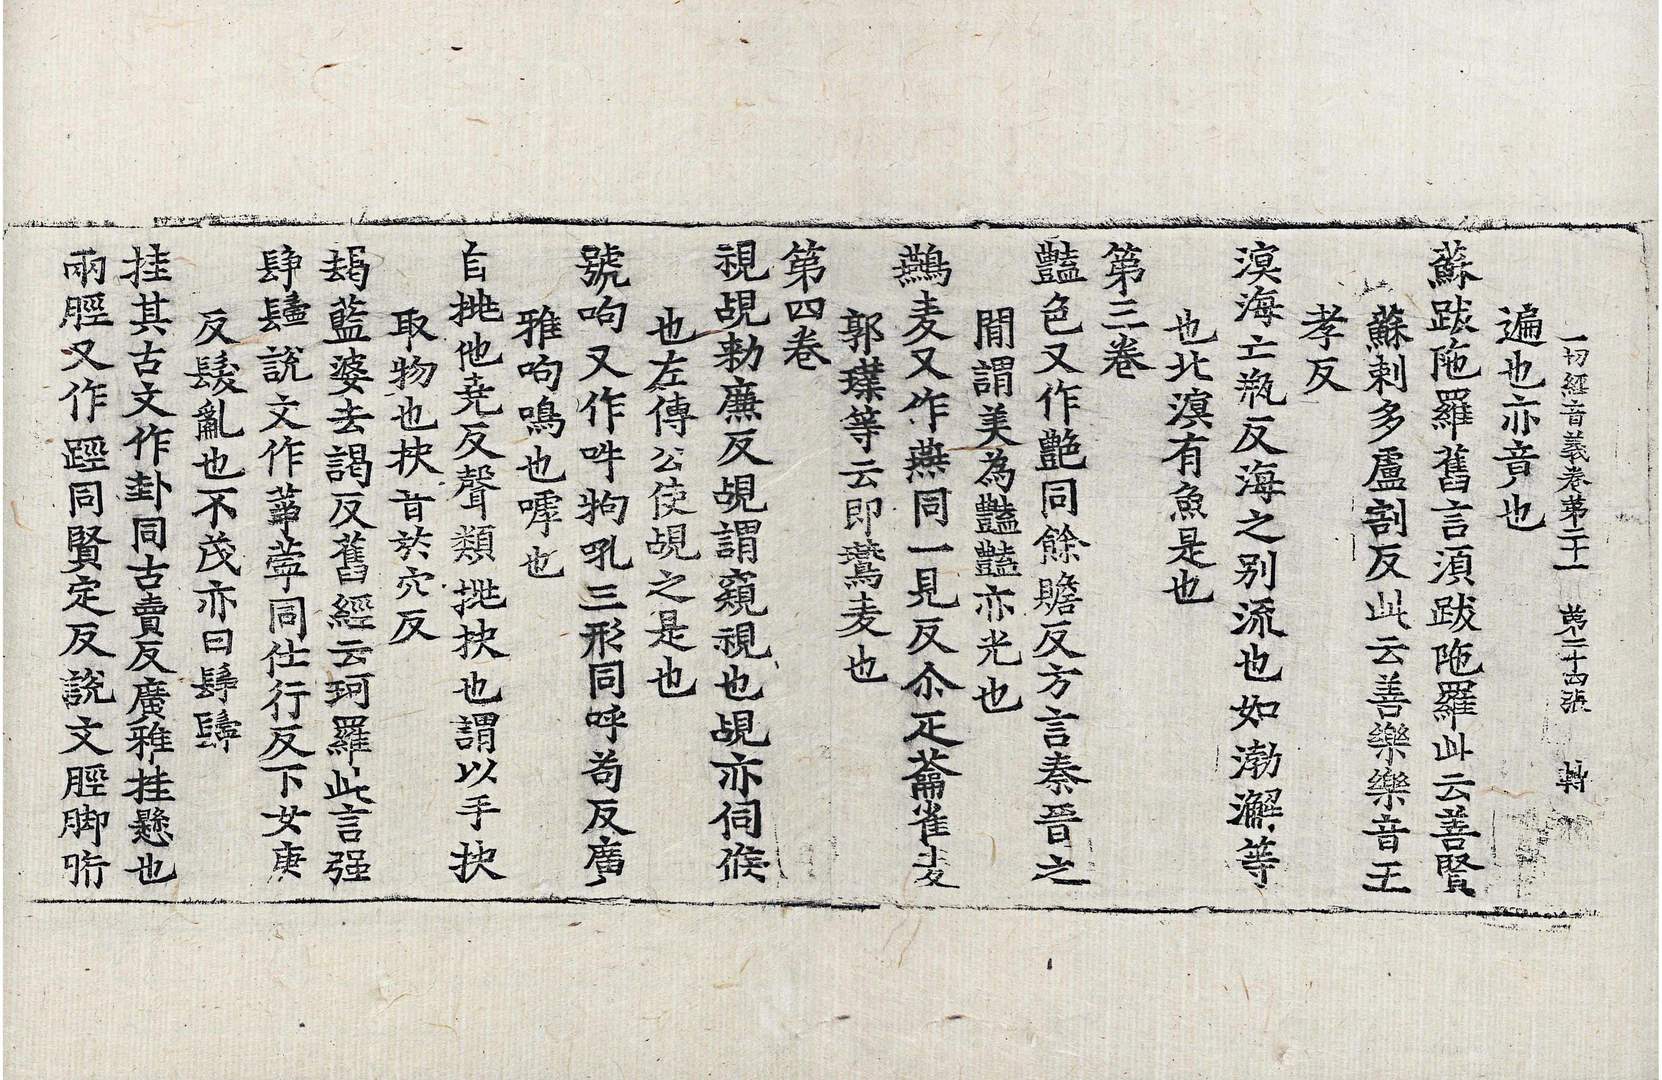 一切經音義卷第二十一 第二十四張 轉
遍也亦音也
蘇跋陁羅舊言須跋陁羅此云善賢
蘇剌多盧割反此云善樂樂音五
孝反
溟海亡瓶反海之別流也如渤澥等
也北溟有魚是也
第三卷
豔色又作艷同餘贍反方言秦晉之
閒謂美為豔豔亦光也
鷰麦又作燕同一見反尒疋蘥雀麦
郭璞等云即鷰麦也
第四卷
視覘勑廉反覘謂窺視也覘亦伺候
也左傳公使覘之是也
號呴又作吽狗吼三形同呼苟反廣
雅呴鳴也嘷也
自挑他堯反聲類挑抉也謂以手抉
取物也抉音於穴反
朅藍婆去謁反舊經云珂羅此言强
髮亂也不茂亦曰
挂其古文作卦同古賣反廣雅挂懸也
兩脛又作踁同賢定反說文脛脚䯒